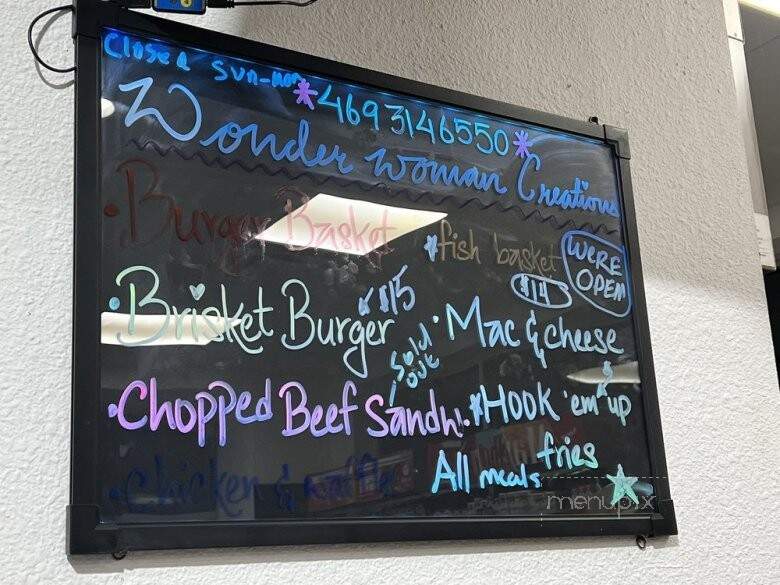 Closed Sun-Mon
* 469 3146550 *
Wonder Woman Creations
• Burger Basket
* fish basket
$14
WERE OPEN
• Brisket Burger
$15
• Mac & cheese
Sold out
• Chopped Beef Sandw.
* Hook 'em up fries
• Chicken & waffles
All meals
menupix